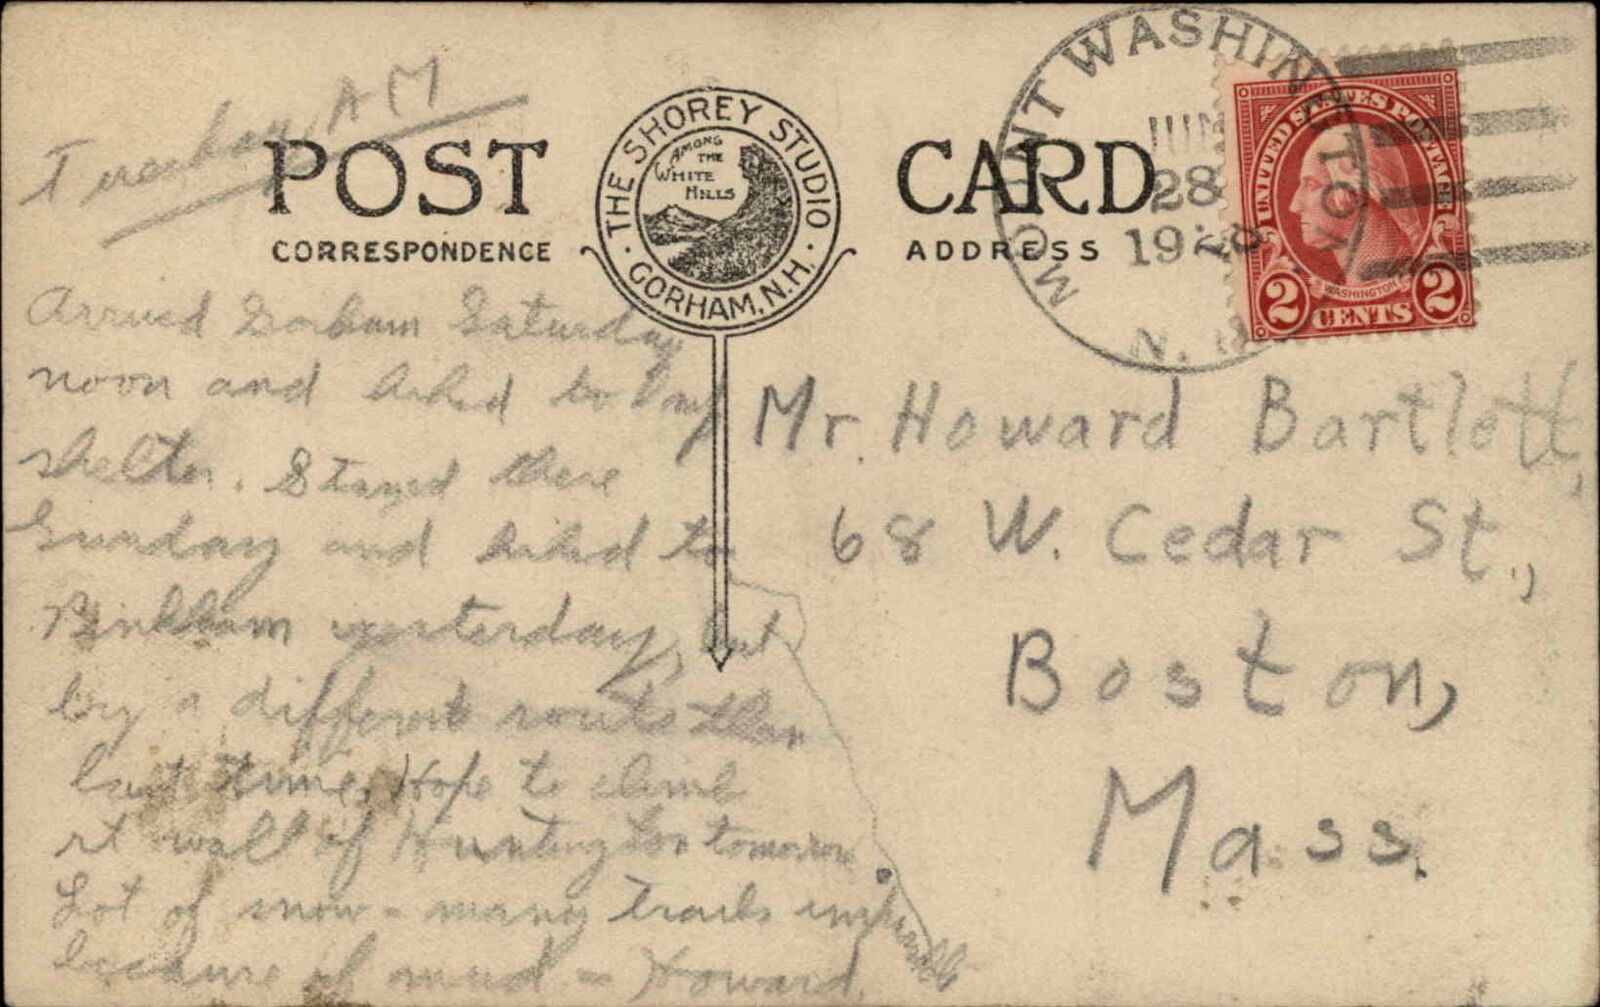 Tuesday, AM
POST CARD
CORRESPONDENCE
ADDRESS
THE SHOREY STUDIO
AMONG
THE
WHITE
HILLS
GORHAM, N.H.
MOUNT WASHINGTON
JUN
28
19
N. H.
UNITED STATES POSTAGE
WASHINGTON
2 CENTS 2
Arrived Gorham Saturday
noon and hiked to Imp
shelter. Stayed there
Sunday and hiked to
Pinkham yesterday, but
by a different route than
last time. Hope to climb
rt wall of Huntington tomorrow
Lot of snow - many trails impassable
because of mud - Howard.
Mr. Howard Bartlett,
68 W. Cedar St.,
Boston,
Mass.